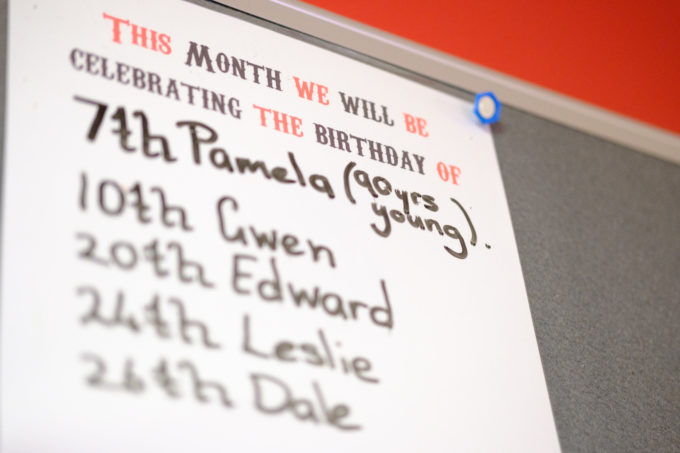 This Month we will be
celebrating the birthday of
7th Pamela (90yrs
young).
10th Gwen
20th Edward
24th Leslie
26th Dale